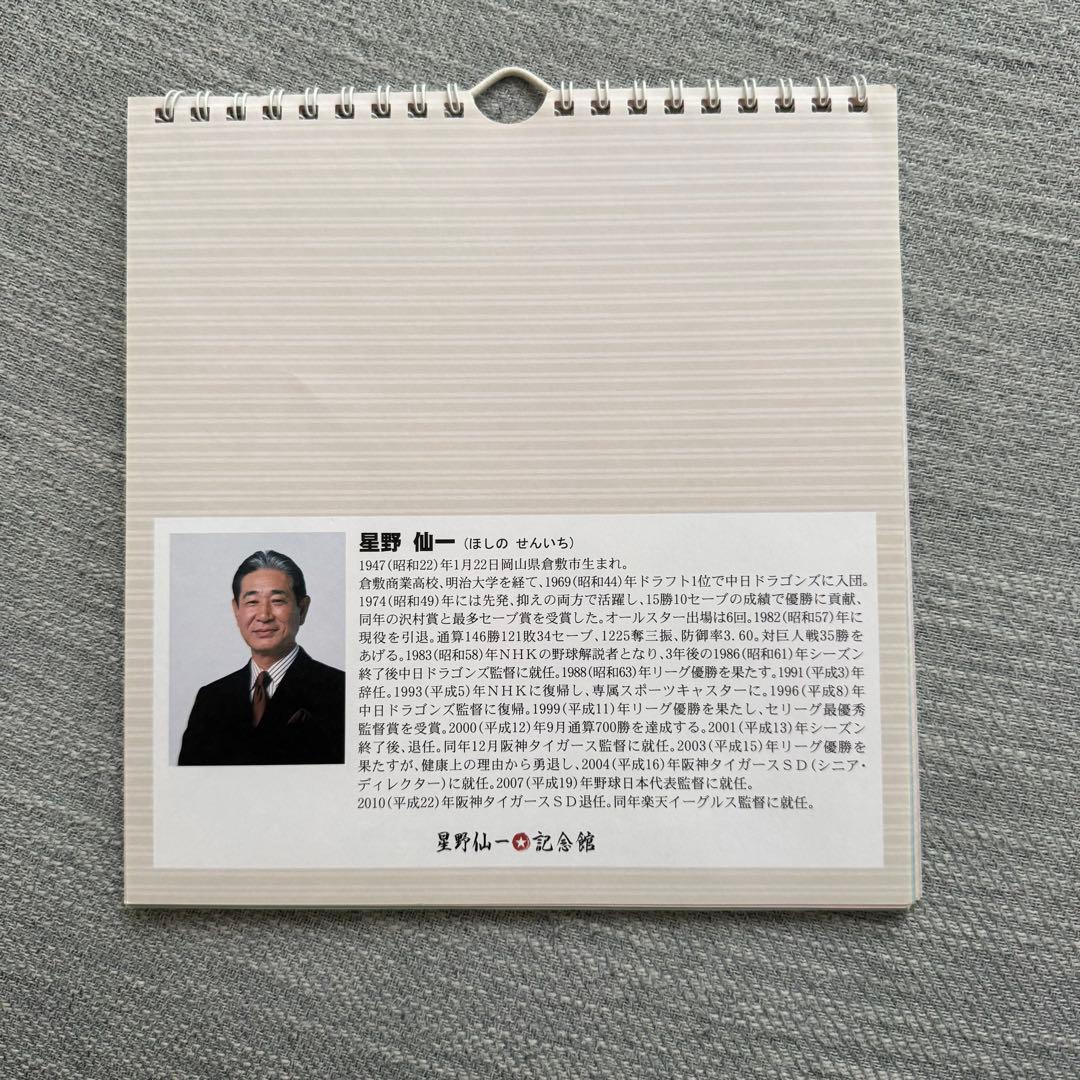 星野 仙一(ほしの せんいち)
1947(昭和22)年1月22日岡山県倉敷市生まれ。
倉敷商業高校、明治大学を経て、1969(昭和44)年ドラフト1位で中日ドラゴンズに入団。
1974(昭和49)年には先発、抑えの両方で活躍し、15勝10セーブの成績で優勝に貢献、
同年の沢村賞と最多セーブ賞を受賞した。オールスター出場は6回。1982(昭和57)年に
現役を引退。通算146勝121敗34セーブ、1225奪三振、防御率3.60。対巨人戦35勝を
あげる。1983(昭和58)年NHKの野球解説者となり、3年後の1986(昭和61)年シーズン
終了後中日ドラゴンズ監督に就任。1988(昭和63)年リーグ優勝を果たす。1991(平成3)年
辞任。1993(平成5)年NHKに復帰し、専属スポーツキャスターに。1996(平成8)年
中日ドラゴンズ監督に復帰。1999(平成11)年リーグ優勝を果たし、セリーグ最優秀
監督賞を受賞。2000(平成12)年9月通算700勝を達成する。2001(平成13)年シーズン
終了後、退任。同年12月阪神タイガース監督に就任。2003(平成15)年リーグ優勝を
果たすが、健康上の理由から勇退し、2004(平成16)年阪神タイガースSD(シニア・
ディレクター)に就任。2007(平成19)年野球日本代表監督に就任。
2010(平成22)年阪神タイガースSD退任。同年楽天イーグルス監督に就任。
星野仙一★記念館